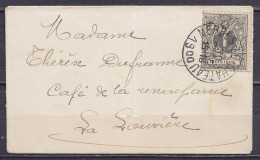 Madame
Thérèse Dufranne
Café de la renaissance
La Louvière
CHATEAU